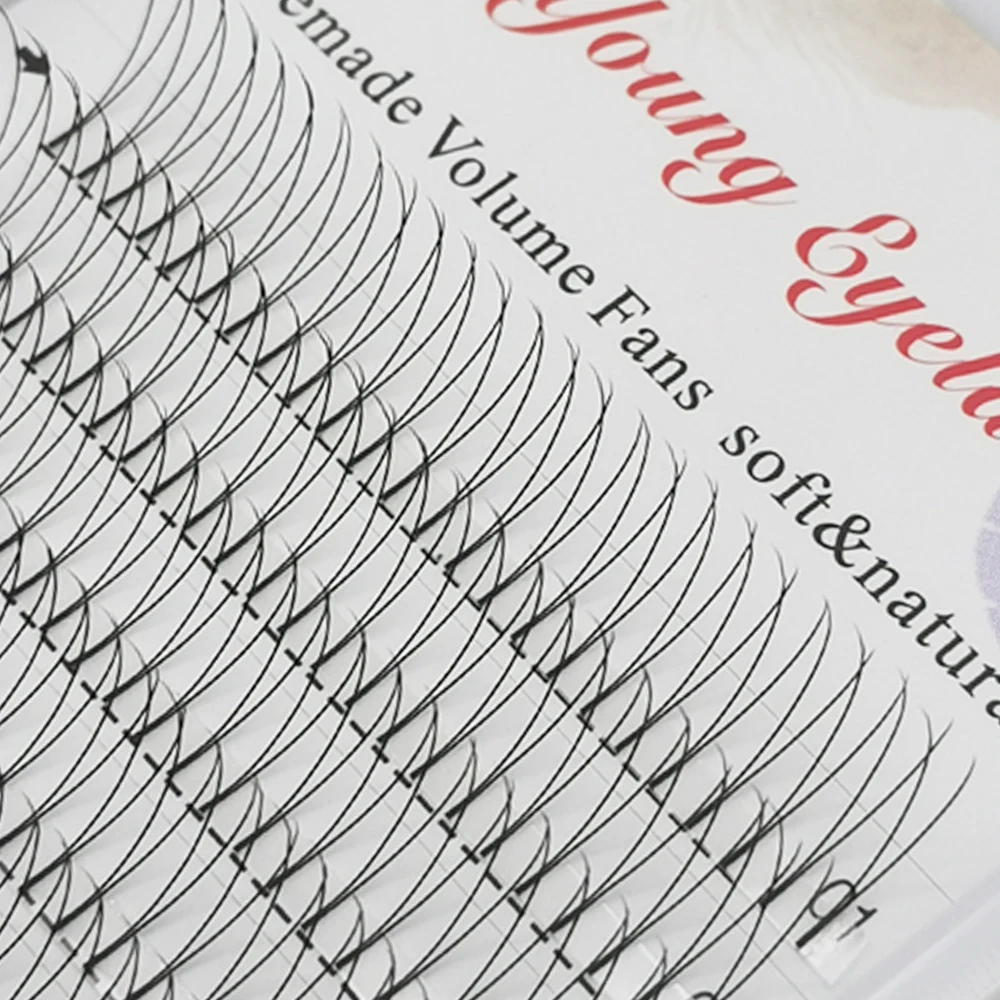 Young Eyela
emade Volume Fans soft&natura